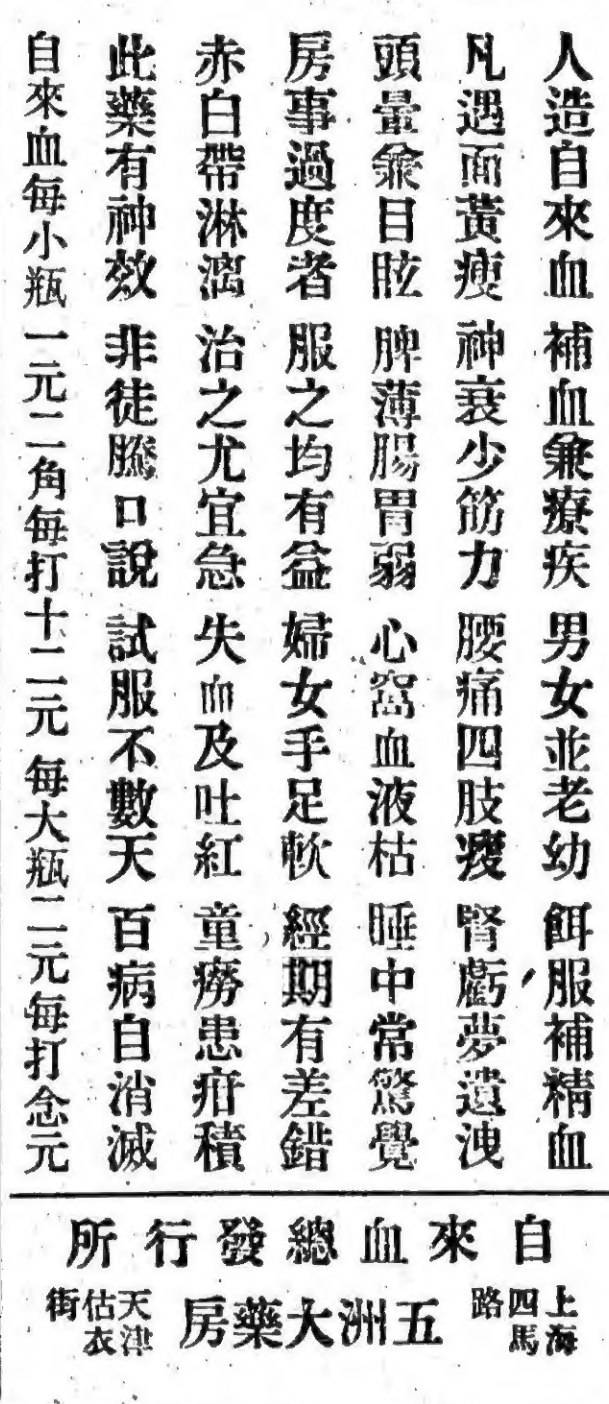 人造自來血 補血兼療疾 男女並老幼 餌服補精血
凡遇面黃瘦 神衰少筋力 腰痛四肢痠 腎虧夢遺洩
頭暈兼目眩 脾薄腸胃弱 心窩血液枯 睡中常驚覺
房事過度者 服之均有益 婦女手足軟 經期有差錯
赤白帶淋漓 治之尤宜急 失血及吐紅 童癆患疳積
此藥有神效 非徒騰口說 試服不數天 百病自消滅
自來血每小瓶一元二角每打十二元 每大瓶二元每打念元
自來血總發行所
上海四馬路
五洲大藥房
天津估衣街